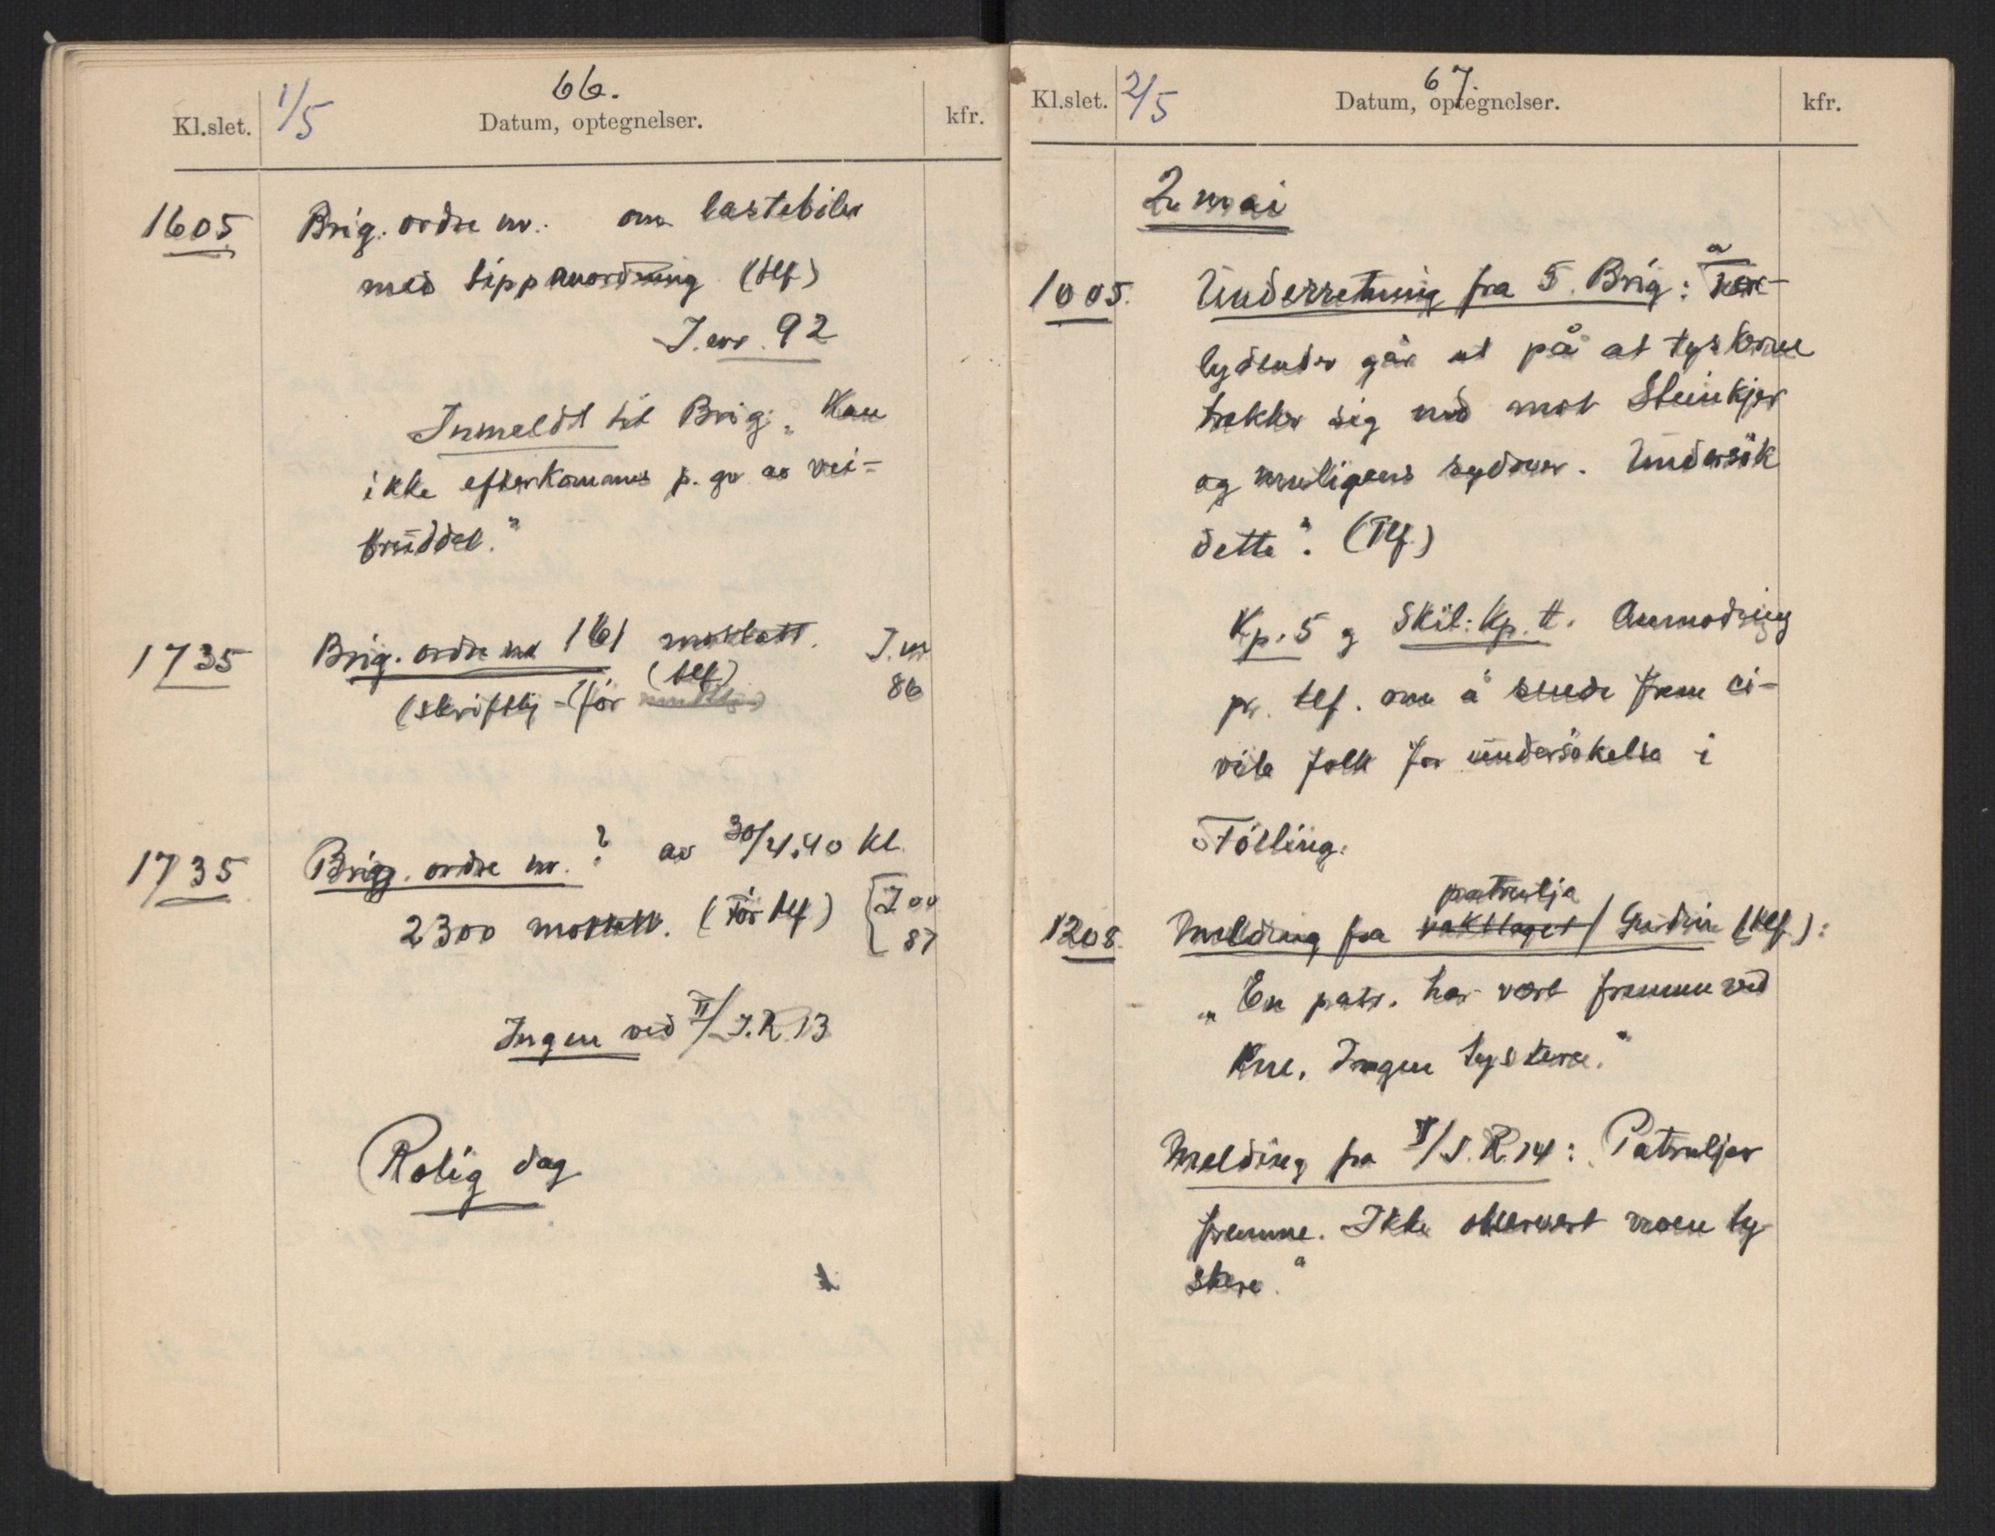 66.
Kl.slet. 1/5 Datum, optegnelser. kfr.
1605 Brig. ordre nr. om lastebiler
med tippanordning (tlf)
J.nr. 92
Innmeldt til Brig: „Kan
ikke efterkommes p. gr av vei-
brüddet.“
1735 Brig. ordre nr 161 mottatt. J.nr
(tlf)
(skriftlig - før 86
1735 Brig. ordre nr. ? av 30/4.40 kl.
2300 mottatt. (Før tlf) J 00
87
Ingen ved II/J.R.13
Rolig dag
67.
Kl.slet. 2/5 Datum, optegnelser. kfr.
2 mai
1005. Ünderretning fra 5. Brig: „For-
lydender går ut på at tyskerne
trekker sig ned mot Steinkjer
og muligens sydover. Ündersøk
dette“. (Tlf.)
Kp. 5 og Skil: Kp. tt. Anmodning
pr. tlf. om å sende frem ci-
vile folk for ündersøkelse i
Følling.
patrulja
1208. Melding fra vaktlaget / (tlf.):
„En patr. har vært fremme ved
Ingen tyskere.“
Melding fra I/J.R.14: „Patruljer
fremme. Ikke observert noen ty-
skere.“